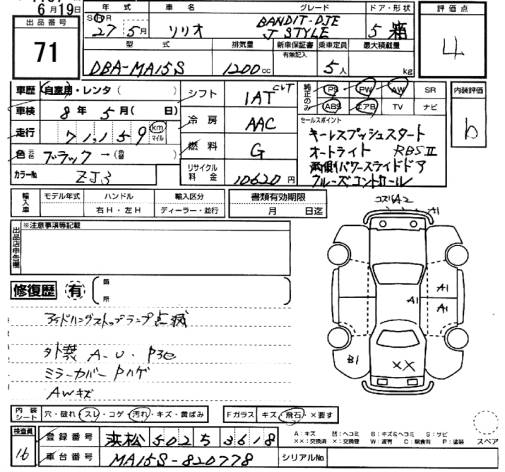 6月19日
出品番号
71
年式 車名 グレード ドア・形状
27年5月 ソリオ BANDIT-DJE J STYLE 5 箱
型式 排気量 新車保証書 有無記入 乗車定員 最大積載量
DBA-MA15S 1200cc 5人 kg
評価点
4
車歴 自家用・レンタ( )
車検 8年5月(日)
走行 71,159 km マイル
色 元色 ブラック→(替色 )
カラーNo ZJ3
シフト 1AT CVT
冷房 AAC
燃料 G
リサイクル料金 10620円
純正のみ PS PW AW SR
ABS エアB TV ナビ
内装評価
b
セールスポイント
キーレスプッシュスタート
オートライト RBSⅡ
両側パワースライドドア
クルーズコントロール
輸入車 モデル年式 ハンドル 輸入区分
右H・左H ディーラー・並行
書類有効期限
月 日迄
出品店申告欄
※注意事項等記載
修復歴 有 箇所
アイドリングストップランプ点滅
外装 A-U-Pヨゴ
ミラーカバーPハゲ
AWキズ
コスリA2
A1
A1
A1
A1
B1
XX
内装シート 穴・破れ・スレ・コゲ・汚れ・キズ・黄ばみ
Fガラス キズ・飛石・X要す
A:キズ U:ヘコミ B:キズ&ヘコミ S:サビ
スペア
検査員
16
登録番号 浜松 502 ち 3618
車台番号 MA15S-820778
シリアルNo